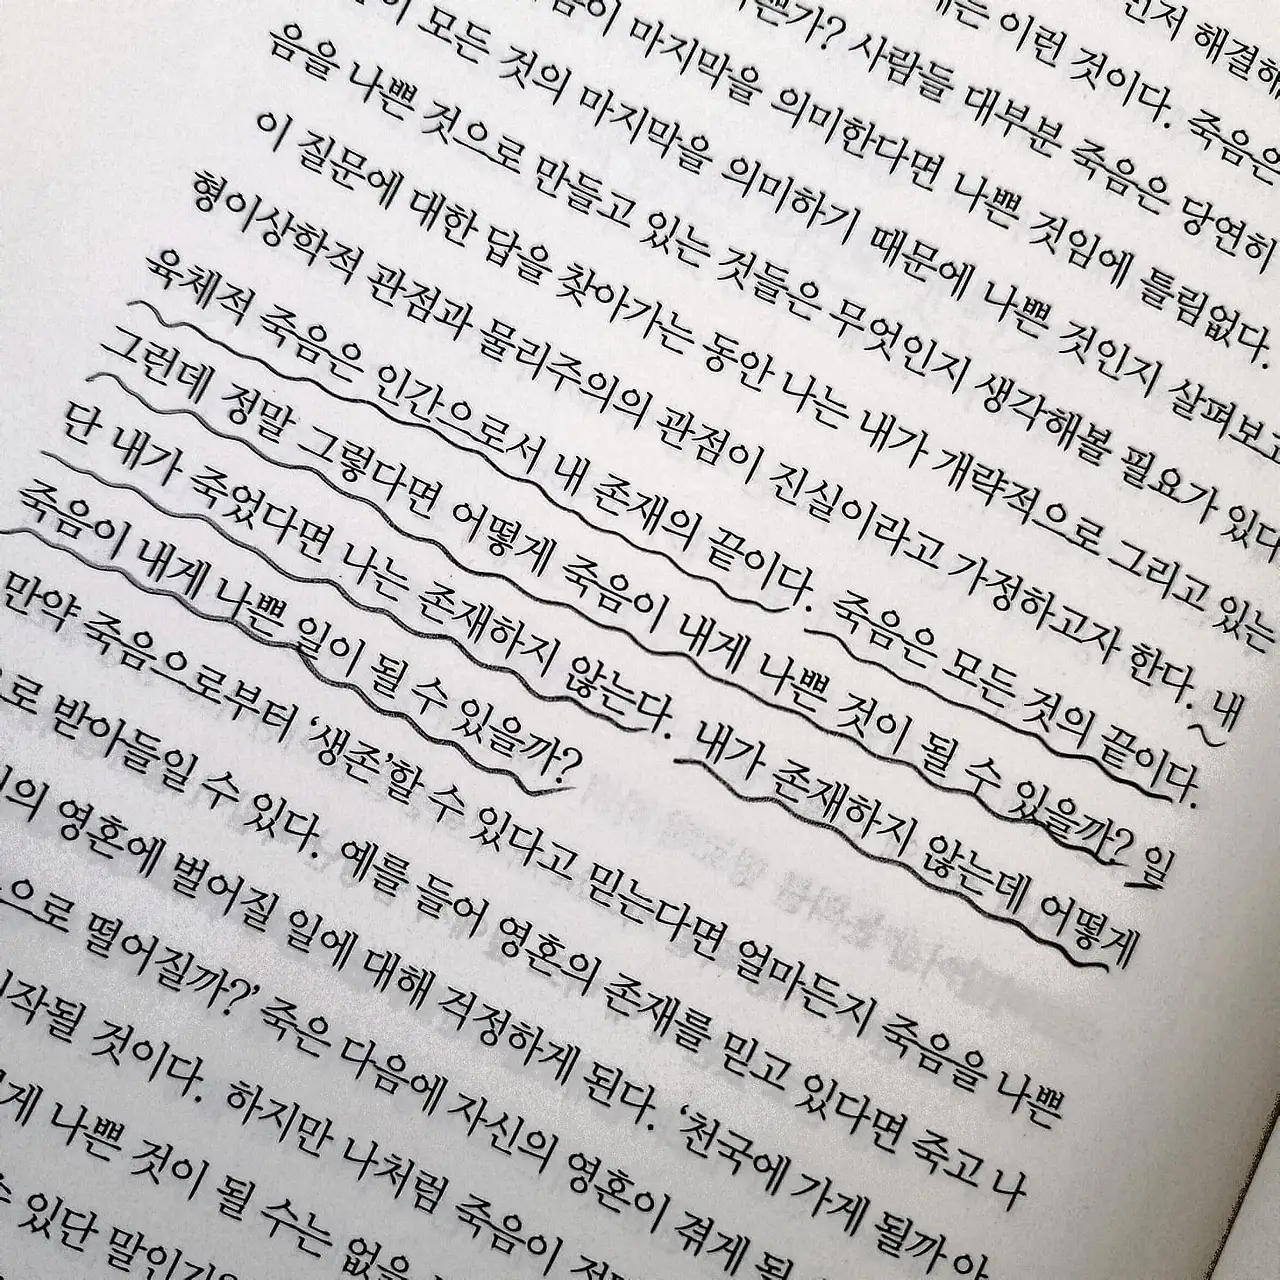 먼저 해결해
는 이런 것이다. 죽음은
가? 사람들 대부분 죽음은 당연히
이 마지막을 의미한다면 나쁜 것임에 틀림없다.
이 모든 것의 마지막을 의미하기 때문에 나쁜 것인지 살펴보고
음을 나쁜 것으로 만들고 있는 것들은 무엇인지 생각해볼 필요가 있다
이 질문에 대한 답을 찾아가는 동안 나는 내가 개략적으로 그리고 있는
형이상학적 관점과 물리주의의 관점이 진실이라고 가정하고자 한다. 내
육체적 죽음은 인간으로서 내 존재의 끝이다. 죽음은 모든 것의 끝이다.
그런데 정말 그렇다면 어떻게 죽음이 내게 나쁜 것이 될 수 있을까? 일
단 내가 죽었다면 나는 존재하지 않는다. 내가 존재하지 않는데 어떻게
죽음이 내게 나쁜 일이 될 수 있을까?
만약 죽음으로부터 ‘생존’할 수 있다고 믿는다면 얼마든지 죽음을 나쁜
으로 받아들일 수 있다. 예를 들어 영혼의 존재를 믿고 있다면 죽고 나
의 영혼에 벌어질 일에 대해 걱정하게 된다. ‘천국에 가게 될까 아
으로 떨어질까?’ 죽은 다음에 자신의 영혼이 겪게 될
시작될 것이다. 하지만 나처럼 죽음이
게 나쁜 것이 될 수는 없을
수 있단 말인가